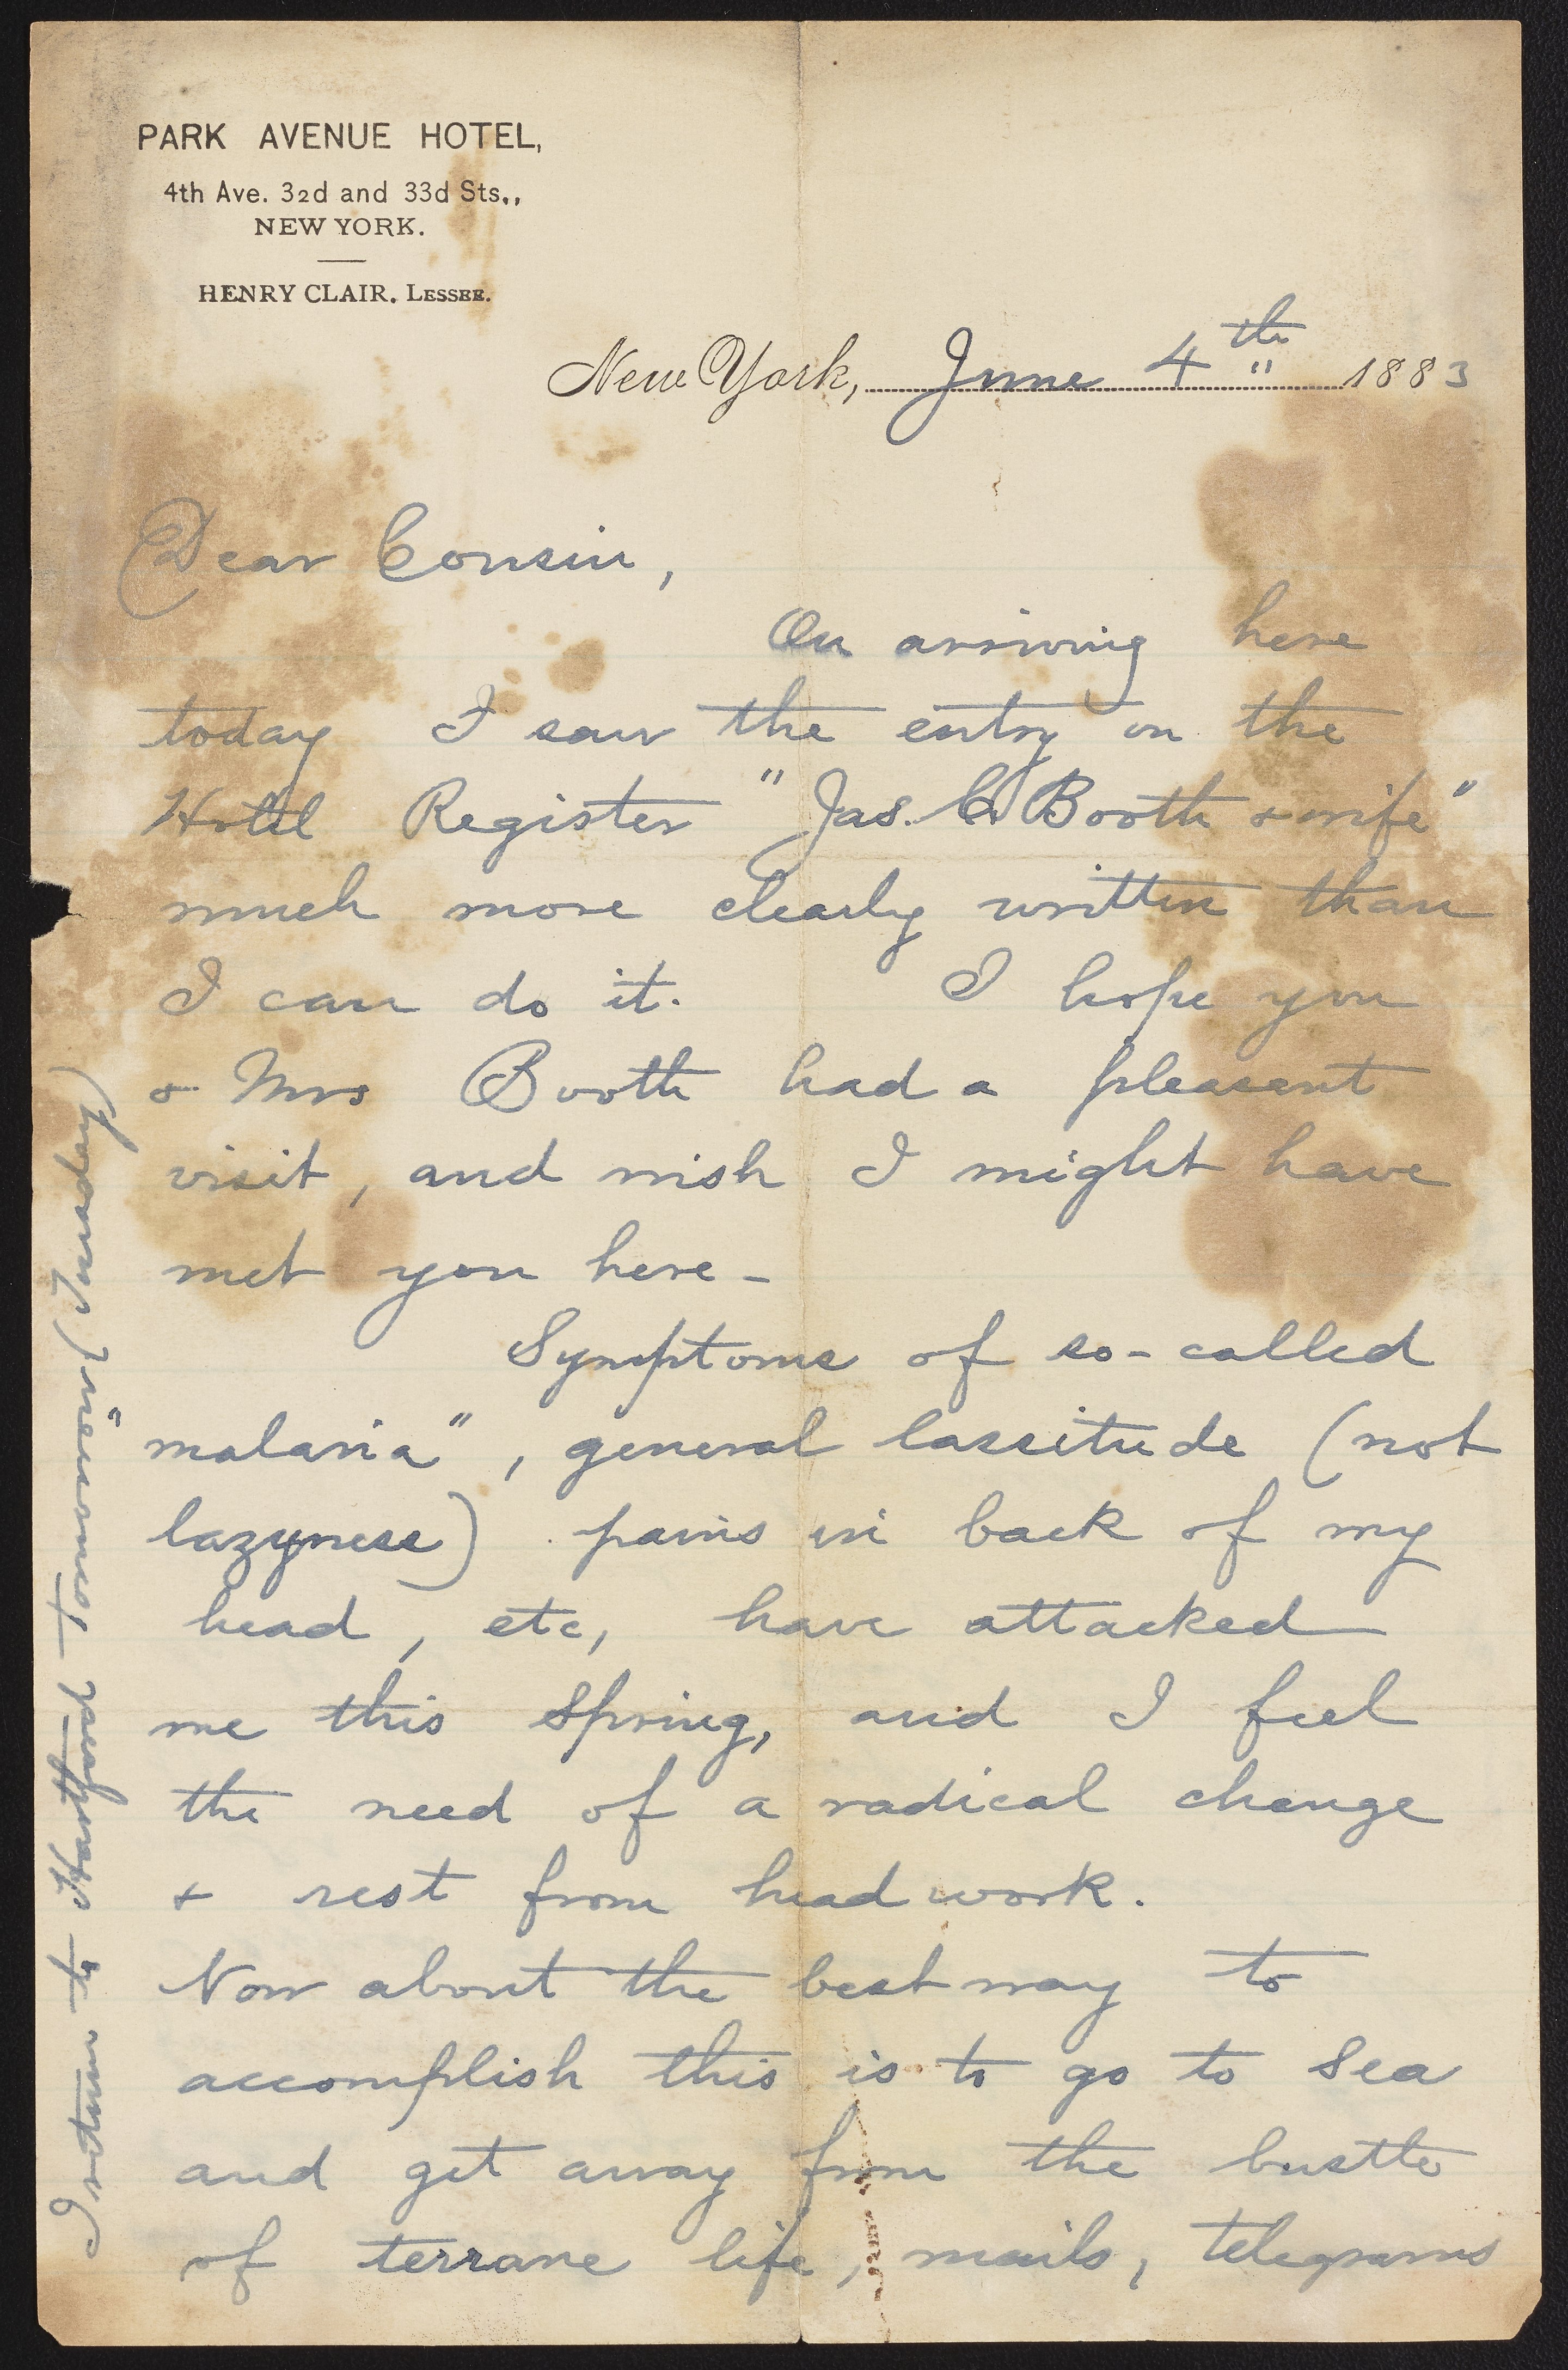 PARK AVENUE HOTEL,
4th Ave. 32d and 33d Sts.,
NEW YORK.
HENRY CLAIR, LESSEE.
New York, June 4th 1883
Dear Cousin,
On arriving here
today I saw the entry on the
Hotel Register "Jas. C. Booth & wife"
much more clearly written than
I can do it. I hope you
& Mrs Booth had a pleasant
visit, and wish I might have
met you here -
Symptoms of so-called
"malaria", general lassitude (not
lazyness) pains in back of my
head, etc, have attacked
me this Spring, and I feel
the need of a radical change
& rest from head work.
Now about the best way to
accomplish this is to go to Sea
and get away from the bustle
of terrane life, mails, telegrams
I return to Hartford tomorrow (Tuesday)